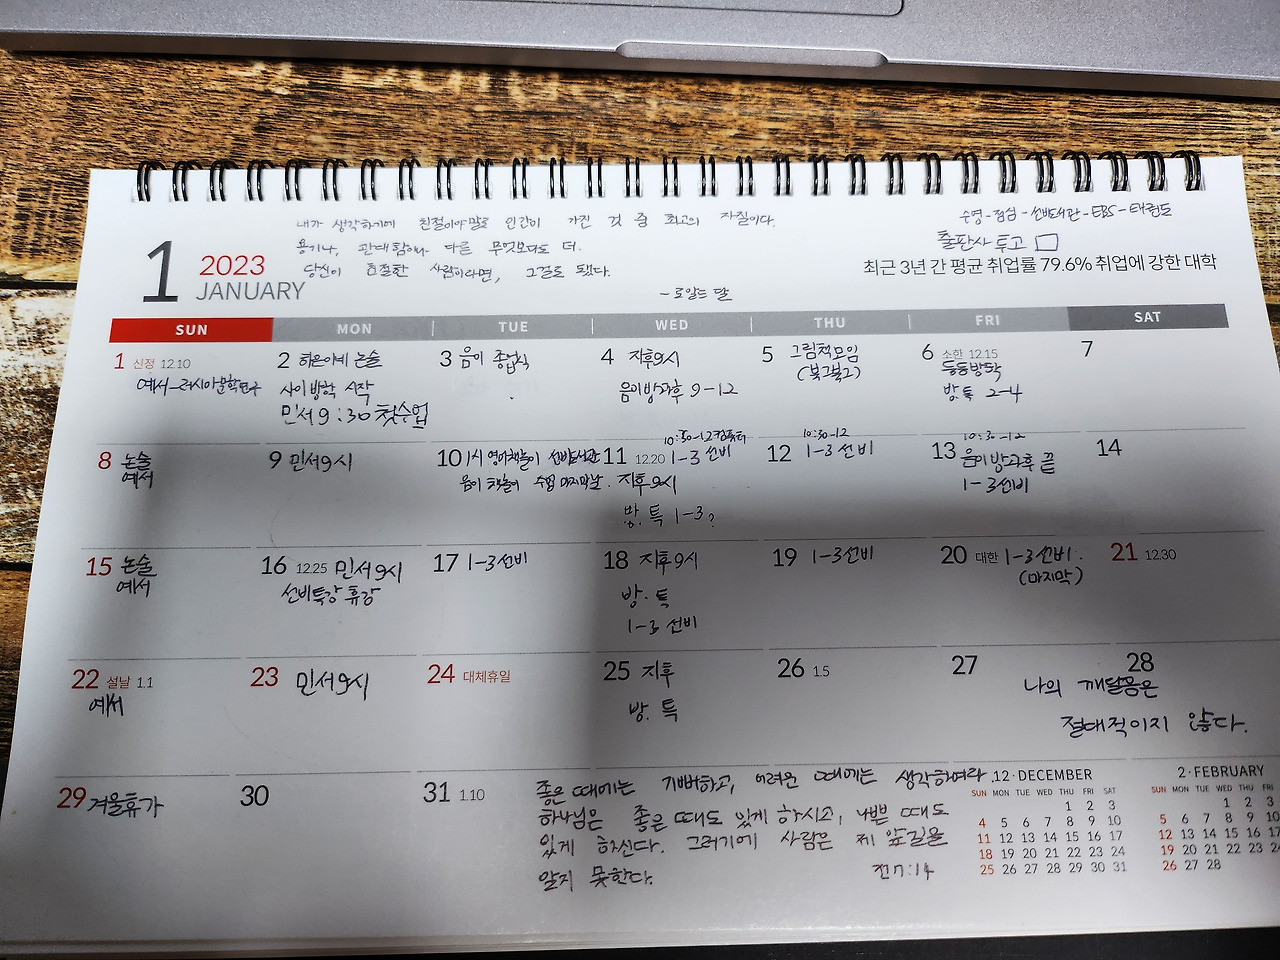 내가 생각하기에 친절이야말로 인간이 가진 것 중 최고의 자질이다.
용기나, 관대함이나 다른 무엇보다도 더.
당신이 친절한 사람이라면, 그걸로 됐다.
-로알드 달
수영-점심-선비도서관-EBS-태권도
출판사 투고 □
최근 3년 간 평균 취업률 79.6% 취업에 강한 대학
1 2023
JANUARY
SUN MON TUE WED THU FRI SAT
1 신정 12.10
예서-러시아문학연구
2 하은이네 논술
사이방학 시작
민서 9:30 첫수업
3 음이 종업식
4 지후9시
음이방과후 9-12
5 그림책모임
(북그북그)
6 소한 12.15
둥둥방학
방.특 2-4
7
8 논술
예서
9 민서9시
10 1시 영어책놀이 선비도서관
음이 책놀이 수업 마지막날.
11 12.20
10:50-12 컴퓨터
1-3 선비
지후9시
방.특 1-3?
12 10:30-12
1-3 선비
13 10:30-12
음이방과후 끝
1-3선비
14
15 논술
예서
16 12.25 민서9시
선비특강 휴강
17 1-3선비
18 지후9시
방.특
1-3 선비
19 1-3선비
20 대한 1-3선비.
(마지막)
21 12.30
22 설날 1.1
예서
23 민서9시
24 대체휴일
25 지후
방.특
26 1.5
27
28
나의 깨달음은
절대적이지 않다.
29 겨울휴가
30
31 1.10
좋은 때에는 기뻐하고, 어려운 때에는 생각하여라.
하나님은 좋은 때도 있게 하시고, 나쁜 때도
있게 하신다. 그러기에 사람은 제 앞길을
알지 못한다.
전7:14
12·DECEMBER
SUN MON TUE WED THU FRI SAT
1 2 3
4 5 6 7 8 9 10
11 12 13 14 15 16 17
18 19 20 21 22 23 24
25 26 27 28 29 30 31
2·FEBRUARY
SUN MON TUE WED THU FRI
1 2 3
5 6 7 8 9 10
12 13 14 15 16 17
19 20 21 22 23
26 27 28